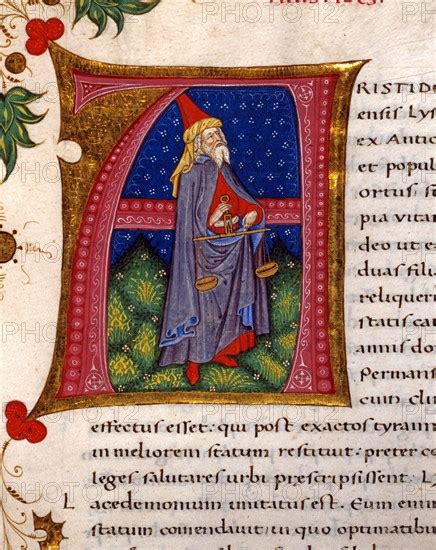 ARISTID
ensis Lys
ex Antio
et popul
ortus st
pia vitar
deo ut e
duas fili
reliqueri
statis car
annis do
Permans
cum cli
effectus esset: qui post exactos tyrann
in meliorem statum restituit: preter ce
leges salutares urbi prescripsissent. Ly
Lacedemonium imitatus est. Eum enim
statum comendavit: in quo optimatib